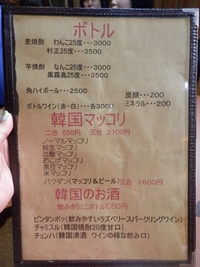 ボトル
麦焼酎 わんこ25度・・・3000
村正25度・・・3500
芋焼酎 なんこ25度・・・3000
黒霧島25度・・・3500
角ハイボール・・・2500 炭酸・・・200
ボトルワイン(赤・白)・・・各3000 ミネラル・・・200
韓国マッコリ
二合 850円 五合 2100円
ノーマルマッコリ
純生マッコリ
加酸マッコリ
おこげマッコリ
黒豆マッコリ
米マッコリ
バクダン(マッコリ&ビール) 五合 1800円
韓国のお酒
飲みきりミニボトル1050円
ピンタンポッ(飲みやすいラズベリースパークリングワイン)
チャミスル(韓国焼酎20度甘口)
チョンハ(韓国清酒 ワインの様な飲み口)